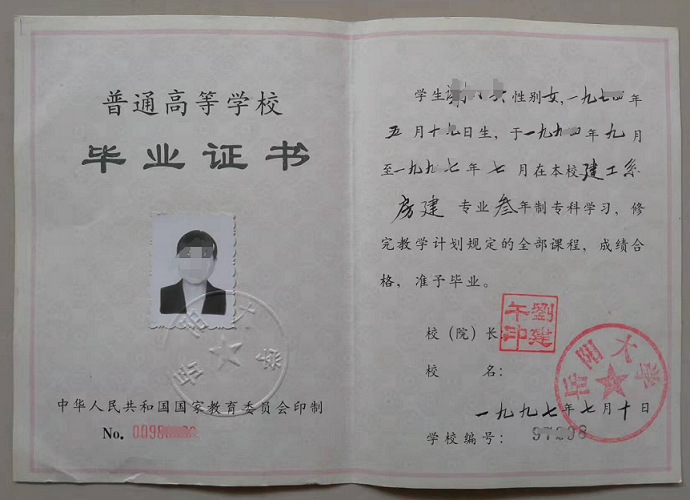 普通高等学校
毕业证书
岳阳大学
中华人民共和国国家教育委员会印制
No. 0098
学生 性别女,一九七四年
五月十九日生,于一九九四年九月
至一九九七年七月在本校建工系
房建 专业叁年制专科学习,修
完教学计划规定的全部课程,成绩合
格,准予毕业。
校(院)长:
劉建午印
校 名:
岳阳大学
一九九七年七月十日
学校编号: 97298